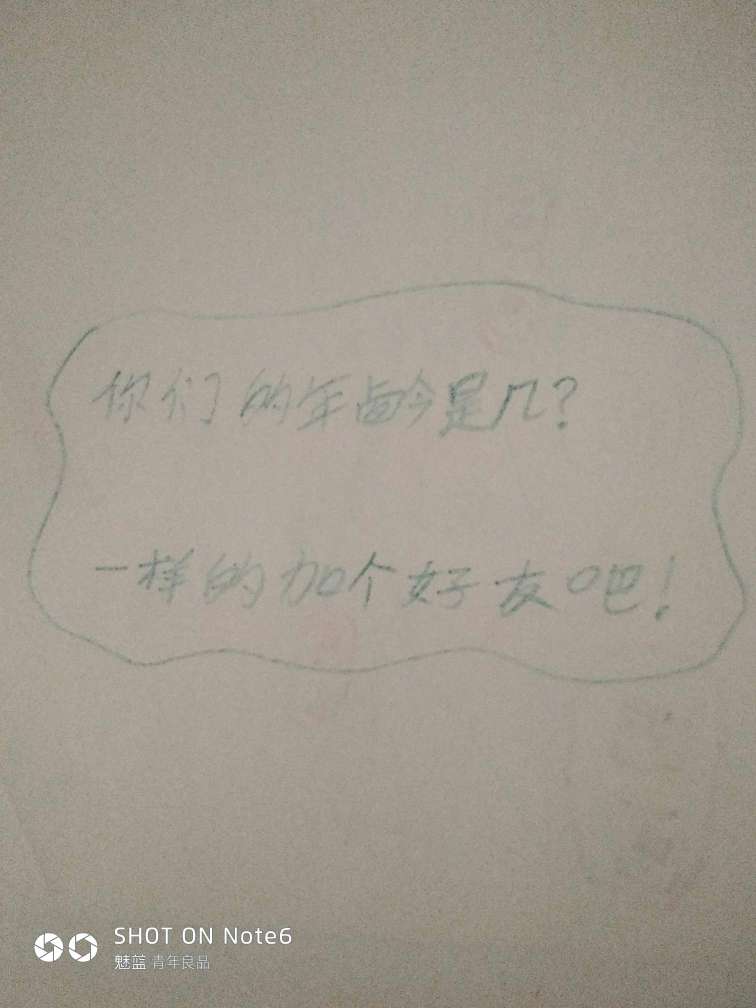 你们的年龄是几?
一样的加个好友吧!
SHOT ON Note6
魅蓝 青年良品